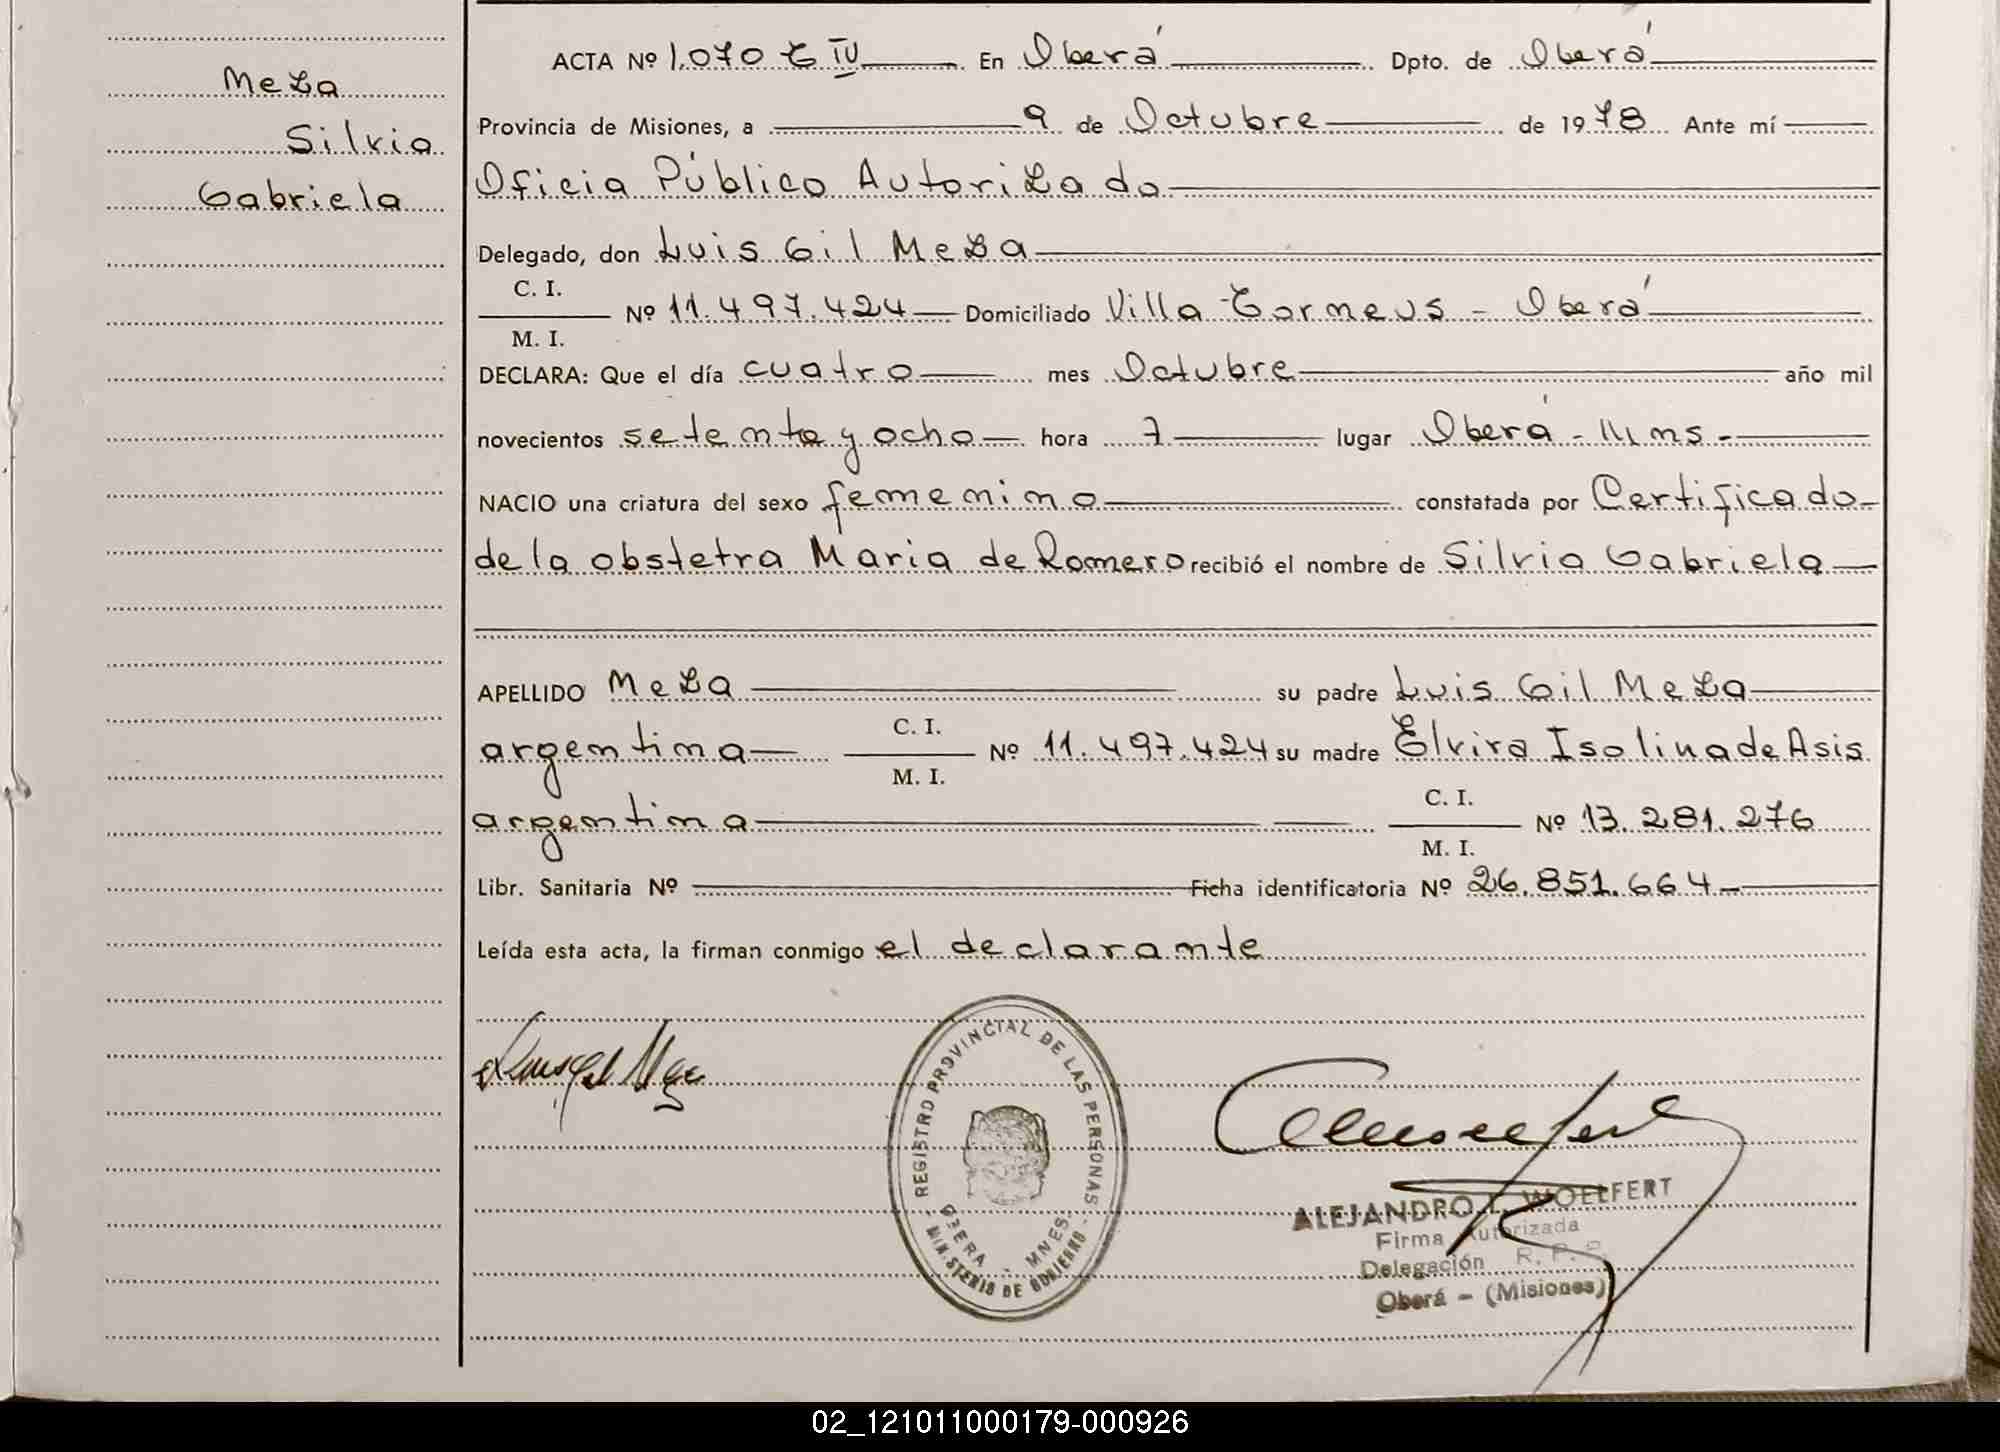 Meza
Silvia
Gabriela
ACTA Nº 1.070 T IV En Oberá Dpto. de Oberá
Provincia de Misiones, a 9 de Octubre de 1978 Ante mí
Oficia Público Autorizado
Delegado, don Luis Gil Meza
C. I.
M. I.
Nº 11.497.424 Domiciliado Villa Tormeus - Oberá
DECLARA: Que el día cuatro mes Octubre año mil
novecientos setenta y ocho hora 7 lugar Oberá - Mns -
NACIO una criatura del sexo femenino constatada por Certificado
de la obstetra Maria de Romero recibió el nombre de Silvia Gabriela
APELLIDO Meza su padre Luis Gil Meza
argentina C. I. M. I. Nº 11.497.424 su madre Elvira Isolina de Asis
argentina C. I. M. I. Nº 13.281.276
Libr. Sanitaria Nº Ficha identificatoria Nº 26.851.664 -
Leída esta acta, la firman conmigo el declarante
REGISTRO PROVINCIAL DE LAS PERSONAS
OBERA - MNES.
- MINISTERIO DE GOBIERNO -
ALEJANDRO L. WOELFERT
Firma Autorizada
Delegación R. P. P.
Oberá - (Misiones)
02_121011000179-000926